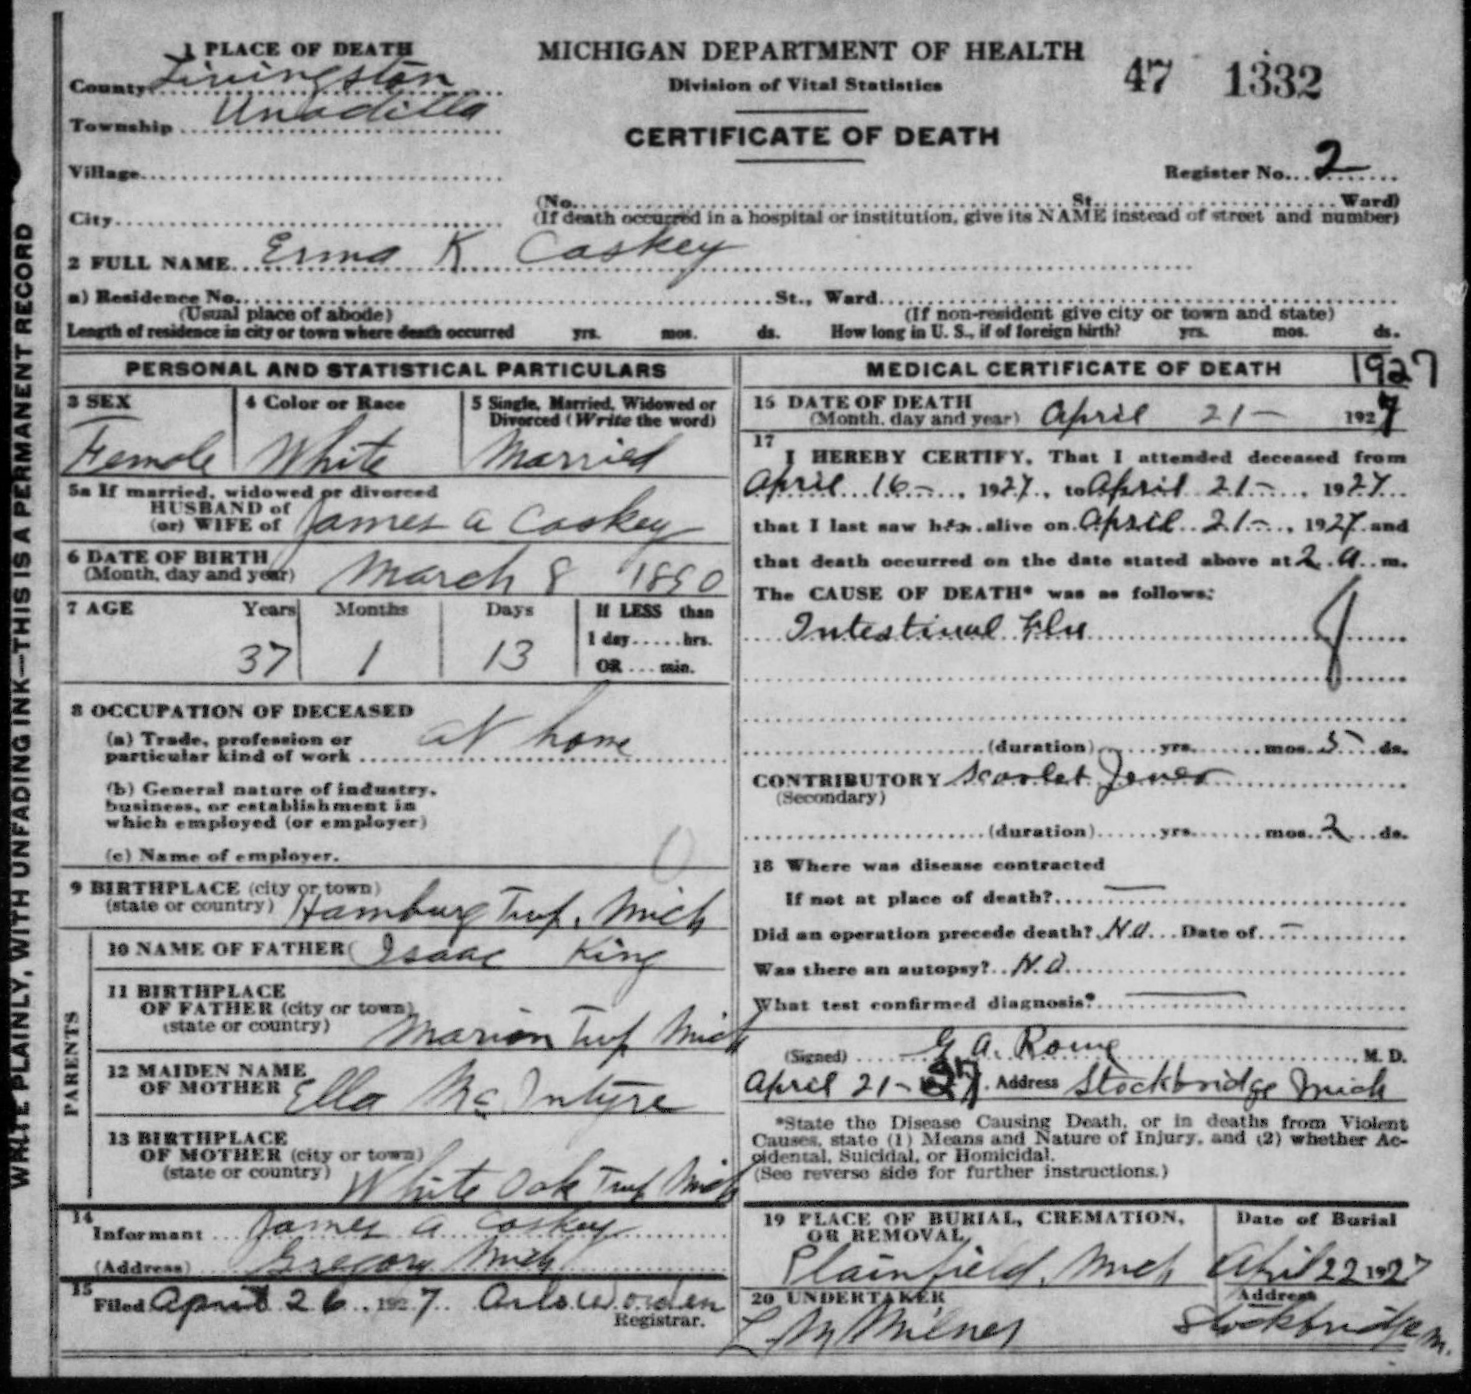 WRITE PLAINLY, WITH UNFADING INK—THIS IS A PERMANENT RECORD
1 PLACE OF DEATH
County Livingston
Township Unadilla
Village
City
MICHIGAN DEPARTMENT OF HEALTH
Division of Vital Statistics
CERTIFICATE OF DEATH
47 1332
Register No. 2
(No. St. Ward)
(If death occurred in a hospital or institution, give its NAME instead of street and number)
2 FULL NAME Erma K Caskey
a) Residence No. St., Ward
(Usual place of abode) (If non-resident give city or town and state)
Length of residence in city or town where death occurred yrs. mos. ds. How long in U. S., if of foreign birth? yrs. mos. ds.
PERSONAL AND STATISTICAL PARTICULARS
3 SEX 4 Color or Race 5 Single, Married, Widowed or
Divorced (Write the word)
Female White Married
5a If married, widowed or divorced
HUSBAND of
(or) WIFE of James A Caskey
6 DATE OF BIRTH
(Month, day and year) March 8 1890
7 AGE Years Months Days If LESS than
1 day hrs.
37 1 13 OR min.
8 OCCUPATION OF DECEASED
(a) Trade, profession or
particular kind of work at home
(b) General nature of industry,
business, or establishment in
which employed (or employer)
(c) Name of employer.
9 BIRTHPLACE (city or town)
(state or country) Hamburg Twp. Mich
PARENTS
10 NAME OF FATHER Isaac King
11 BIRTHPLACE
OF FATHER (city or town)
(state or country) Marion Twp Mich
12 MAIDEN NAME
OF MOTHER Ella McIntyre
13 BIRTHPLACE
OF MOTHER (city or town)
(state or country) White Oak Twp Mich
14
Informant James A Caskey
(Address) Gregory Mich
15
Filed April 26, 1927. Arlo Worden
Registrar.
MEDICAL CERTIFICATE OF DEATH 1927
15 DATE OF DEATH
(Month, day and year) April 21- 1927
17
I HEREBY CERTIFY, That I attended deceased from
April 16-, 1927, to April 21-, 1927
that I last saw her alive on April 21-, 1927 and
that death occurred on the date stated above at 2 a. m.
The CAUSE OF DEATH* was as follows:
Intestinal Flu
(duration) yrs. mos. 5 ds.
CONTRIBUTORY Scarlet Fever
(Secondary)
(duration) yrs. mos. 2 ds.
18 Where was disease contracted
If not at place of death? —
Did an operation precede death? No Date of —
Was there an autopsy? No
What test confirmed diagnosis? —
(Signed) G A. Rowe M. D.
April 21- 27. Address Stockbridge Mich
*State the Disease Causing Death, or in deaths from Violent
Causes, state (1) Means and Nature of Injury, and (2) whether Ac-
cidental, Suicidal, or Homicidal.
(See reverse side for further instructions.)
19 PLACE OF BURIAL, CREMATION,
OR REMOVAL
Plainfield, Mich
Date of Burial
April 22 1927
20 UNDERTAKER
L M Milner
Address
Stockbridge M.